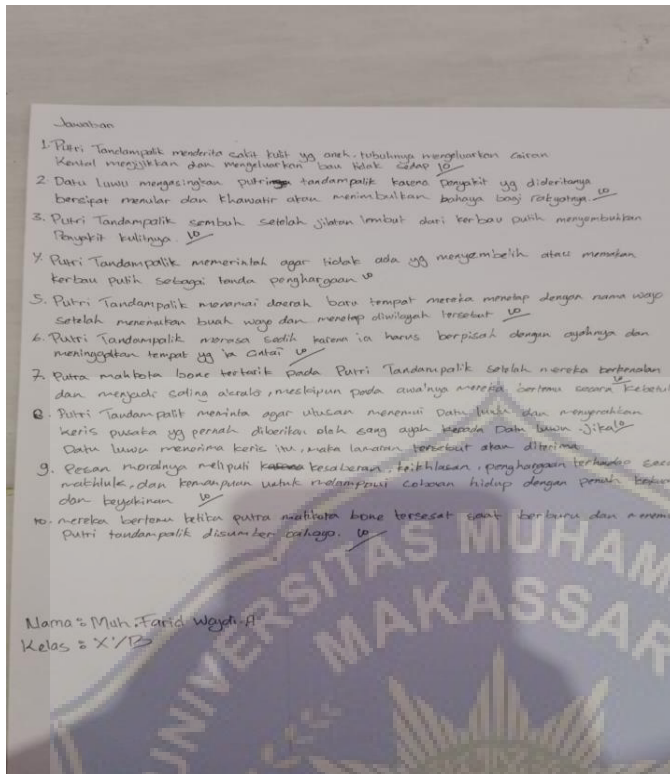 Jawaban
1. Putri Tandampalik menderita sakit kulit yg aneh. tubuhnya mengeluarkan cairan
Kental menjijikkan dan mengeluarkan bau tidak sedap 10
2. Datu Luwu mengasingkan putri tandampalik karena penyakit yg dideritanya
bersipat menular dan khawatir akan menimbulkan bahaya bagi rakyatnya. 10
3. Putri Tandampalik sembuh setelah jilatan lembut dari kerbau putih menyembuhkan
Penyakit kulitnya. 10
4. Putri Tandampalik memerintah agar tidak ada yg menyembelih atau memakan
kerbau putih sebagai tanda penghargaan 10
5. Putri Tandampalik menamai daerah baru tempat mereka menetap dengan nama wajo
setelah menemukan buah wajo dan menetap diwilayah tersebut 10
6. Putri Tandampalik merasa sedih karena ia harus berpisah dengan ayahnya dan
meninggalkan tempat yg ia Cintai 10
7. Putra mahkota bone tertarik pada Putri Tandampalik setelah mereka berkenalan
dan menjadi saling akrab, meskipun pada awalnya mereka bertemu secara Kebetul 10
8. Putri Tandampalik meminta agar utusan menemui Datu luwu dan menyerahkan
Keris pusaka yg pernah diberikan oleh sang ayah kepada Datu luwu. Jika 10
Datu luwu menerima keris itu, maka lamaran tersebut akan diterima
9. Pesan moralnya meliputi kesabaran, keikhlasan, penghargaan terhadap
makhluk, dan kemampuan untuk melampaui cobaan hidup dengan penuh
dan keyakinan 10
10. mereka bertemu ketika putra mahkota bone tersesat saat berburu dan menem
Putri tandampalik disumber cahaya. 10
Nama : Muh. Farid Wajdi. A
Kelas : X / B
UNIVERSITAS MUHAM
MAKASSAR